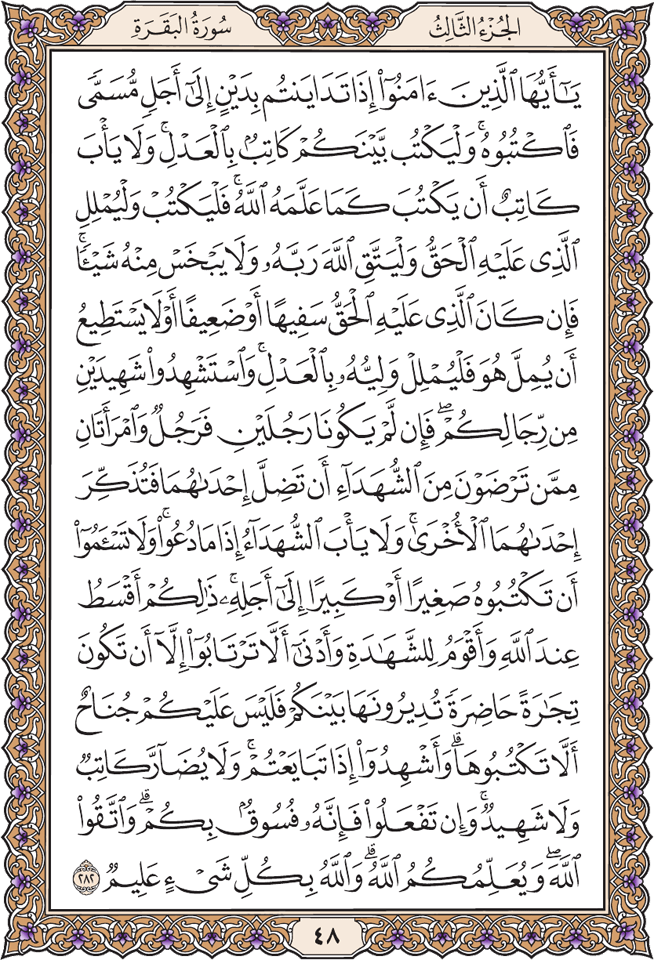 الجُزْءُ الثَّالِثُ
سُورَةُ البَقَرَةِ
يَـٰٓأَيُّهَا ٱلَّذِينَ ءَامَنُوٓاْ إِذَا تَدَايَنتُم بِدَيۡنٍ إِلَىٰٓ أَجَلٖ مُّسَمّٗى
فَٱكۡتُبُوهُۚ وَلۡيَكۡتُب بَّيۡنَكُمۡ كَاتِبُۢ بِٱلۡعَدۡلِۚ وَلَا يَأۡبَ
كَاتِبٌ أَن يَكۡتُبَ كَمَا عَلَّمَهُ ٱللَّهُۚ فَلۡيَكۡتُبۡ وَلۡيُمۡلِلِ
ٱلَّذِي عَلَيۡهِ ٱلۡحَقُّ وَلۡيَتَّقِ ٱللَّهَ رَبَّهُۥ وَلَا يَبۡخَسۡ مِنۡهُ شَيۡـٔٗاۚ
فَإِن كَانَ ٱلَّذِي عَلَيۡهِ ٱلۡحَقُّ سَفِيهًا أَوۡ ضَعِيفًا أَوۡ لَا يَسۡتَطِيعُ
أَن يُمِلَّ هُوَ فَلۡيُمۡلِلۡ وَلِيُّهُۥ بِٱلۡعَدۡلِۚ وَٱسۡتَشۡهِدُواْ شَهِيدَيۡنِ
مِن رِّجَالِكُمۡۖ فَإِن لَّمۡ يَكُونَا رَجُلَيۡنِ فَرَجُلٞ وَٱمۡرَأَتَانِ
مِمَّن تَرۡضَوۡنَ مِنَ ٱلشُّهَدَآءِ أَن تَضِلَّ إِحۡدَىٰهُمَا فَتُذَكِّرَ
إِحۡدَىٰهُمَا ٱلۡأُخۡرَىٰۚ وَلَا يَأۡبَ ٱلشُّهَدَآءُ إِذَا مَا دُعُواْۚ وَلَا تَسۡـَٔمُوٓاْ
أَن تَكۡتُبُوهُ صَغِيرًا أَوۡ كَبِيرًا إِلَىٰٓ أَجَلِهِۦۚ ذَٰلِكُمۡ أَقۡسَطُ
عِندَ ٱللَّهِ وَأَقۡوَمُ لِلشَّهَٰدَةِ وَأَدۡنَىٰٓ أَلَّا تَرۡتَابُوٓاْ إِلَّآ أَن تَكُونَ
تِجَٰرَةً حَاضِرَةٗ تُدِيرُونَهَا بَيۡنَكُمۡ فَلَيۡسَ عَلَيۡكُمۡ جُنَاحٌ
أَلَّا تَكۡتُبُوهَاۗ وَأَشۡهِدُوٓاْ إِذَا تَبَايَعۡتُمۡۚ وَلَا يُضَآرَّ كَاتِبٞ
وَلَا شَهِيدٞۚ وَإِن تَفۡعَلُواْ فَإِنَّهُۥ فُسُوقُۢ بِكُمۡۗ وَٱتَّقُواْ
ٱللَّهَۖ وَيُعَلِّمُكُمُ ٱللَّهُۗ وَٱللَّهُ بِكُلِّ شَيۡءٍ عَلِيمٞ ٢٨٢
٤٨